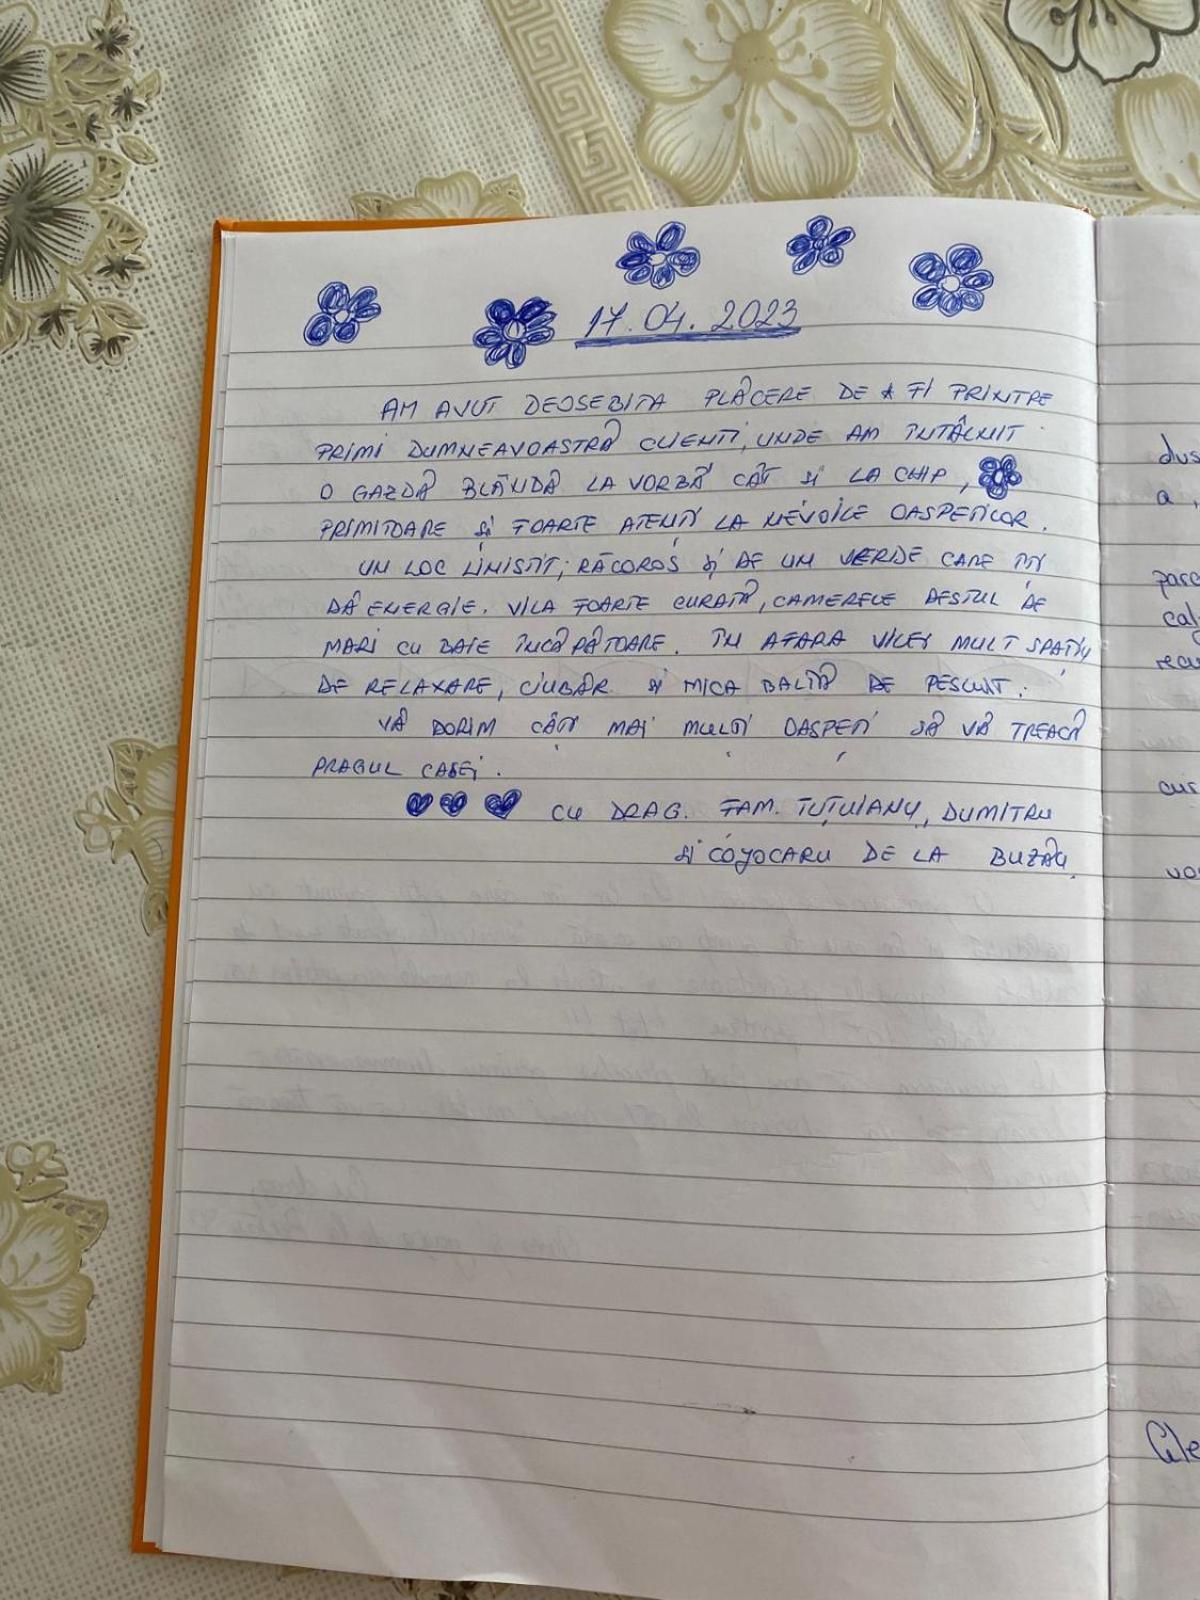 17.04.2023
AM AVUT DEOSEBITA PLĂCERE DE A FI PRINTRE
PRIMI DUMNEAVOASTRĂ CLIENTI, UNDE AM ÎNTÂLNIT
O GAZDĂ BLÂNDĂ LA VORBĂ CÂT ȘI LA CHIP,
PRIMITOARE ȘI FOARTE ATENȚI LA NEVOILE OASPEȚILOR.
UN LOC LINIȘTIT, RĂCOROS ȘI DE UN VERDE CARE ÎȚI
DĂ ENERGIE. VILA FOARTE CURATĂ, CAMERELE DESTUL DE
MARI CU BAIE ÎNCĂPĂTOARE. ÎN AFARA VILEI MULT SPAȚIU
DE RELAXARE, CIUBĂR ȘI MICA BALTĂ DE PESCUIT.
VĂ DORIM CÂȚI MAI MULȚI OASPEȚI SĂ VĂ TREACĂ
PRAGUL CASEI.
CU DRAG. FAM. TUȚUIANU, DUMITRU
ȘI COJOCARU DE LA BUZĂU.
dus
a,
parc
cal
recu
cur
vo